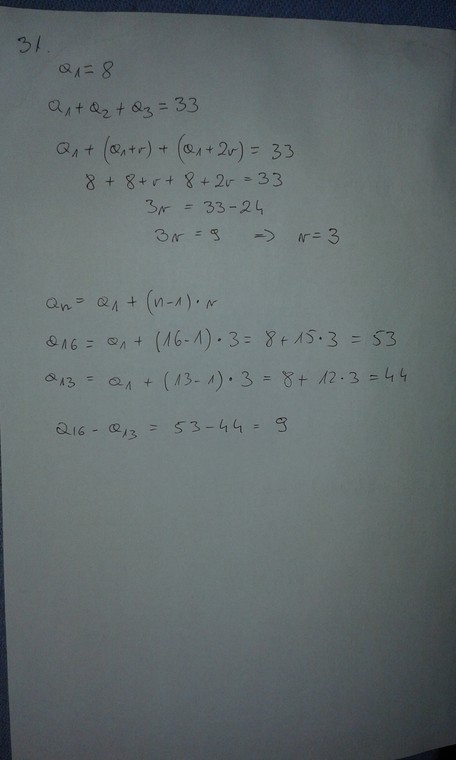 31.
a₁ = 8
a₁ + a₂ + a₃ = 33
a₁ + (a₁+r) + (a₁+2r) = 33
8 + 8+r + 8+2r = 33
3r = 33-24
3r = 9 => r = 3
aₙ = a₁ + (n-1)·r
a₁₆ = a₁ + (16-1)·3 = 8+15·3 = 53
a₁₃ = a₁ + (13-1)·3 = 8+12·3 = 44
a₁₆ - a₁₃ = 53-44 = 9